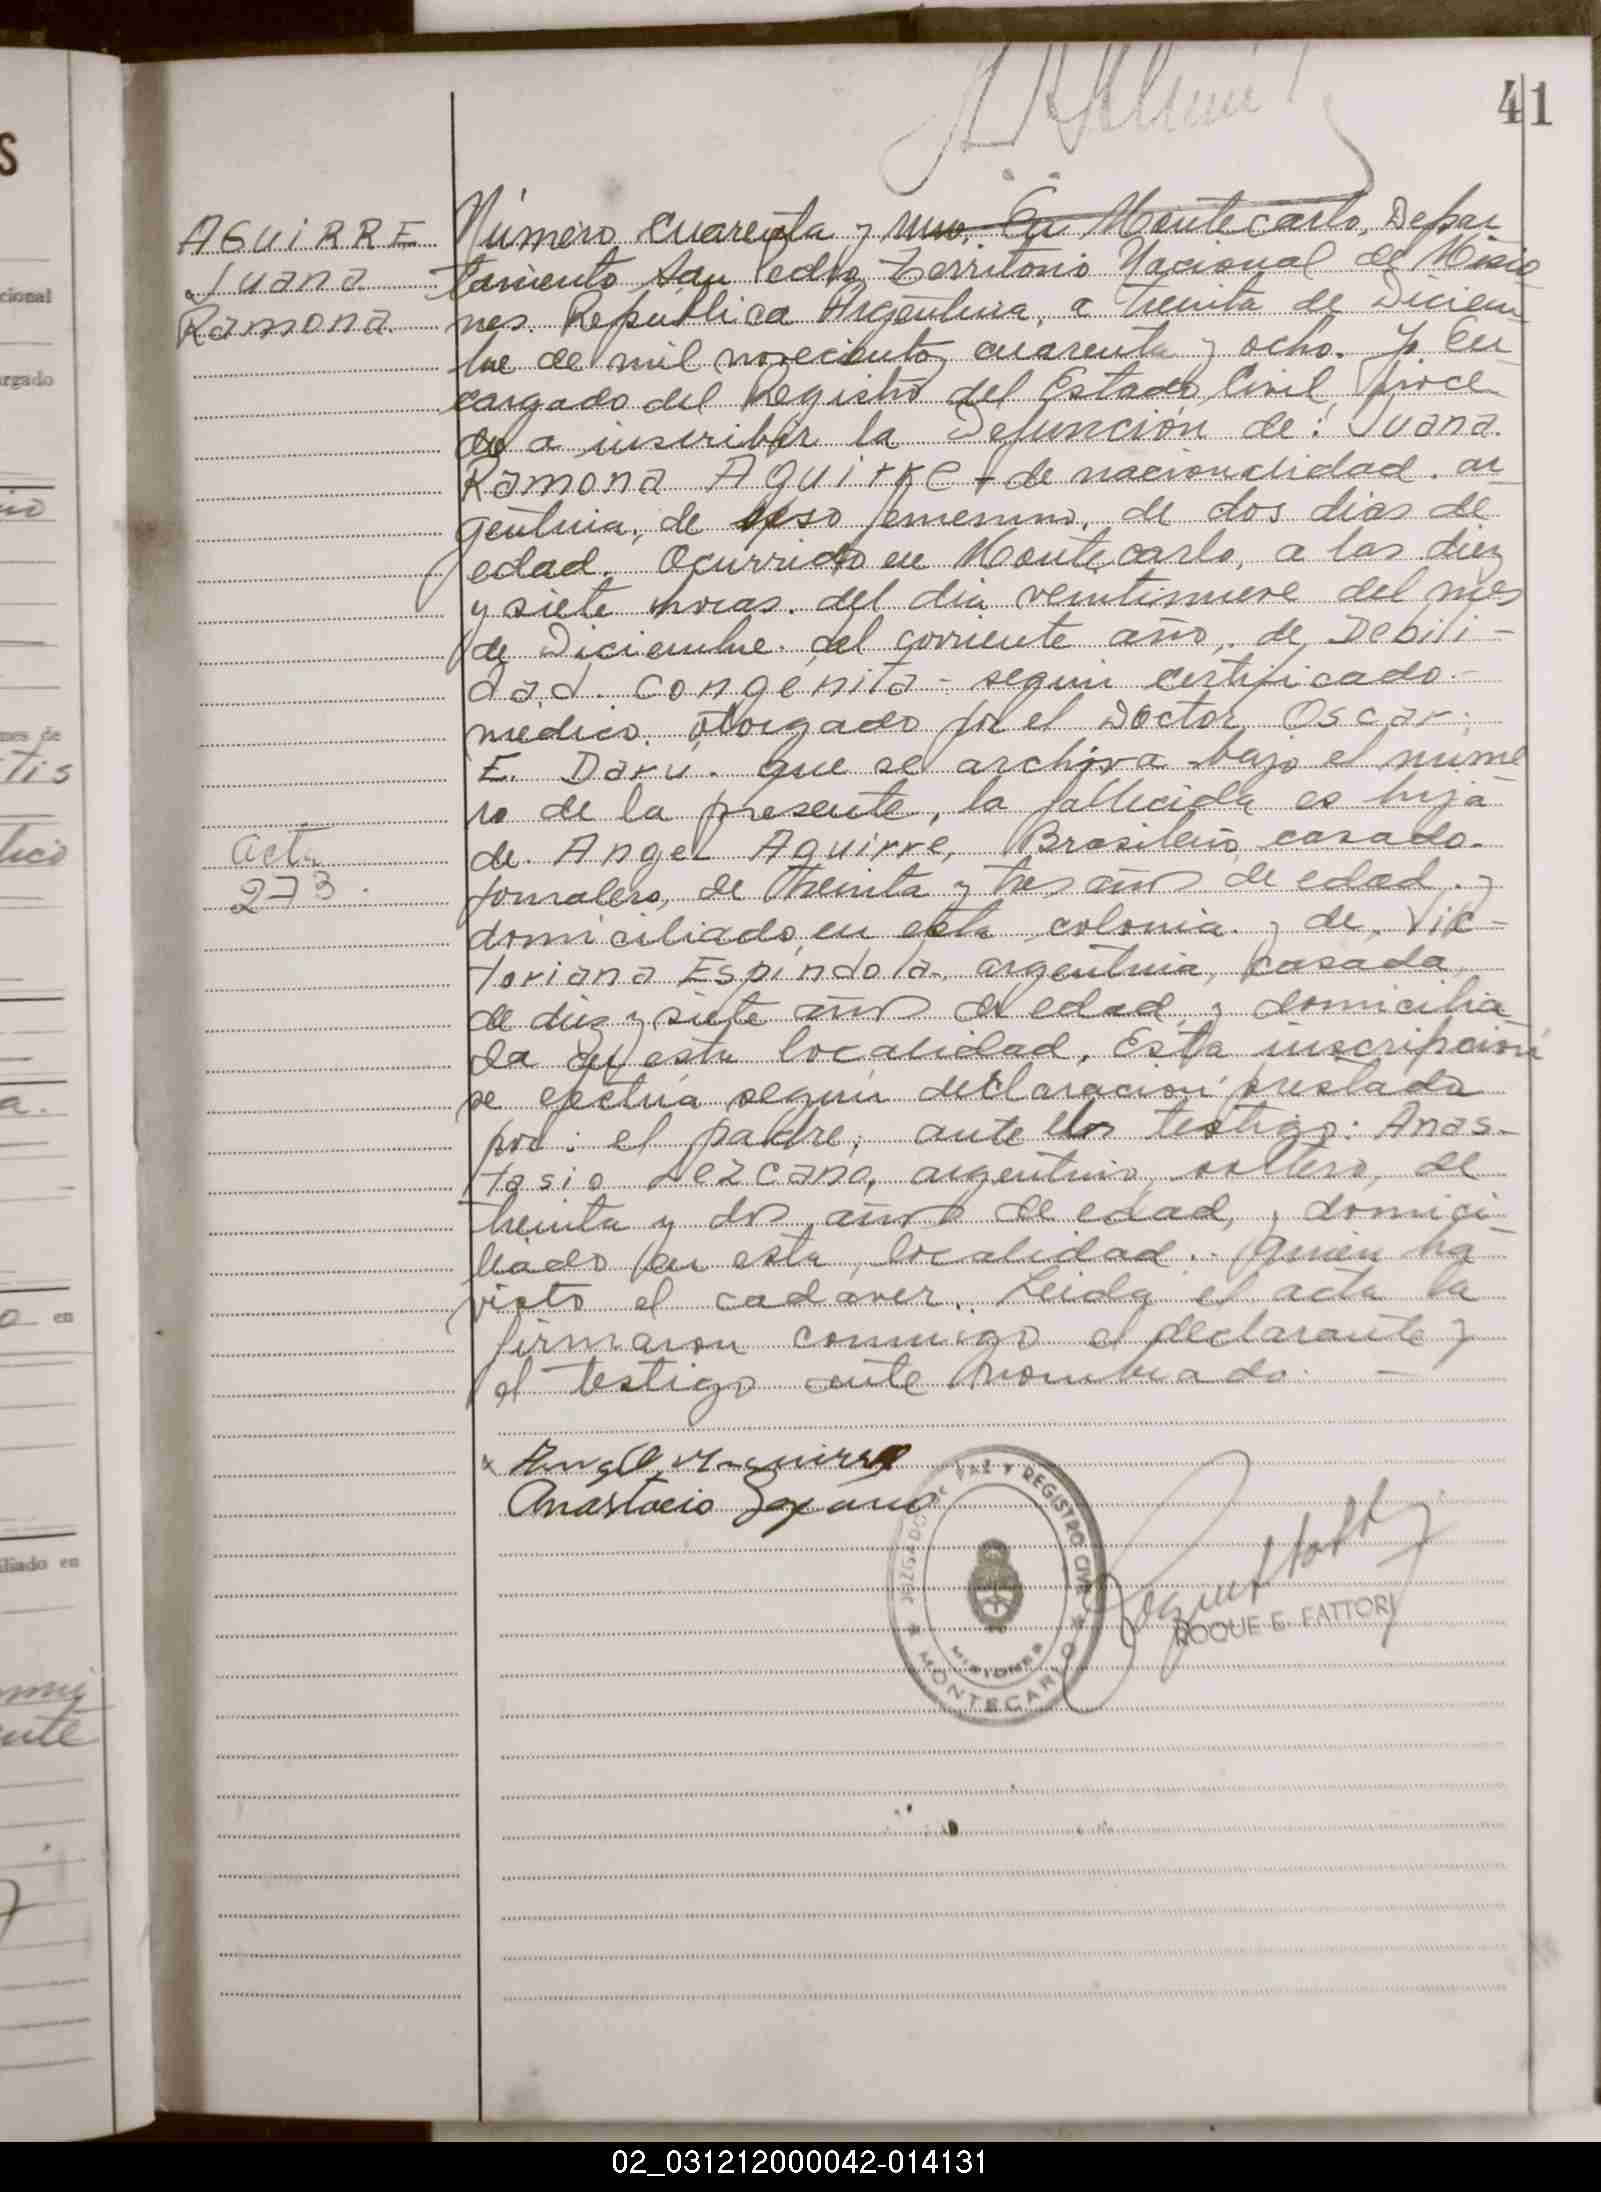 41
AGUIRRE
Juana
Ramona.
Acta
273.
Número cuarenta y uno. En Montecarlo, Depar
tamiento San Pedro Territorio Nacional de Misio
nes. República Argentina, a treinta de Diciem-
bre de mil novecientos cuarenta y ocho. Yo En-
cargado del Registro del Estado Civil, proce-
do a inscribir la Defunción de: Juana.
Ramona Aguirre - de nacionalidad. ar-
gentina, de sexo femenino, de dos dias de
edad. Ocurrido en Montecarlo, a las diez
y siete horas. del dia veintinueve del mes
de Diciembre. del corriente año, de Debili-
dad. Congénita - según certificado.-
medico. otorgado por el Doctor Oscar.
E. Daru. que se archiva bajo el núme
ro de la presente, la fallecida es hija
de. Angel Aguirre, Brasileño, casado.
jornalero, de treinta y tres años de edad. y
domiciliado en esta colonia. y de, Vik-
toriana Espíndola. argentina, casada,
de diez y siete años de edad, y domicilia
da en esta localidad. Esta inscripción
se efectúa según declaración prestada
por: el padre, ante los testigo: Anas-
tasio Lezcano, argentino, soltero, de
treinta y dos años de edad, y domici-
liado en esta localidad.. quien ha
visto el cadaver.. Leida el acta la
firmaron conmigo el declarante y
el testigo ante nombrado. -
x Angel Aguirre
Anastacio
JUZGADO DE PAZ Y REGISTRO CIVIL
MISIONES
MONTECARLO
ROQUE E. FATTORI
S
cional
argado
nes de
tis
tico
a.
o en
iliado en
ente
02_031212000042-014131